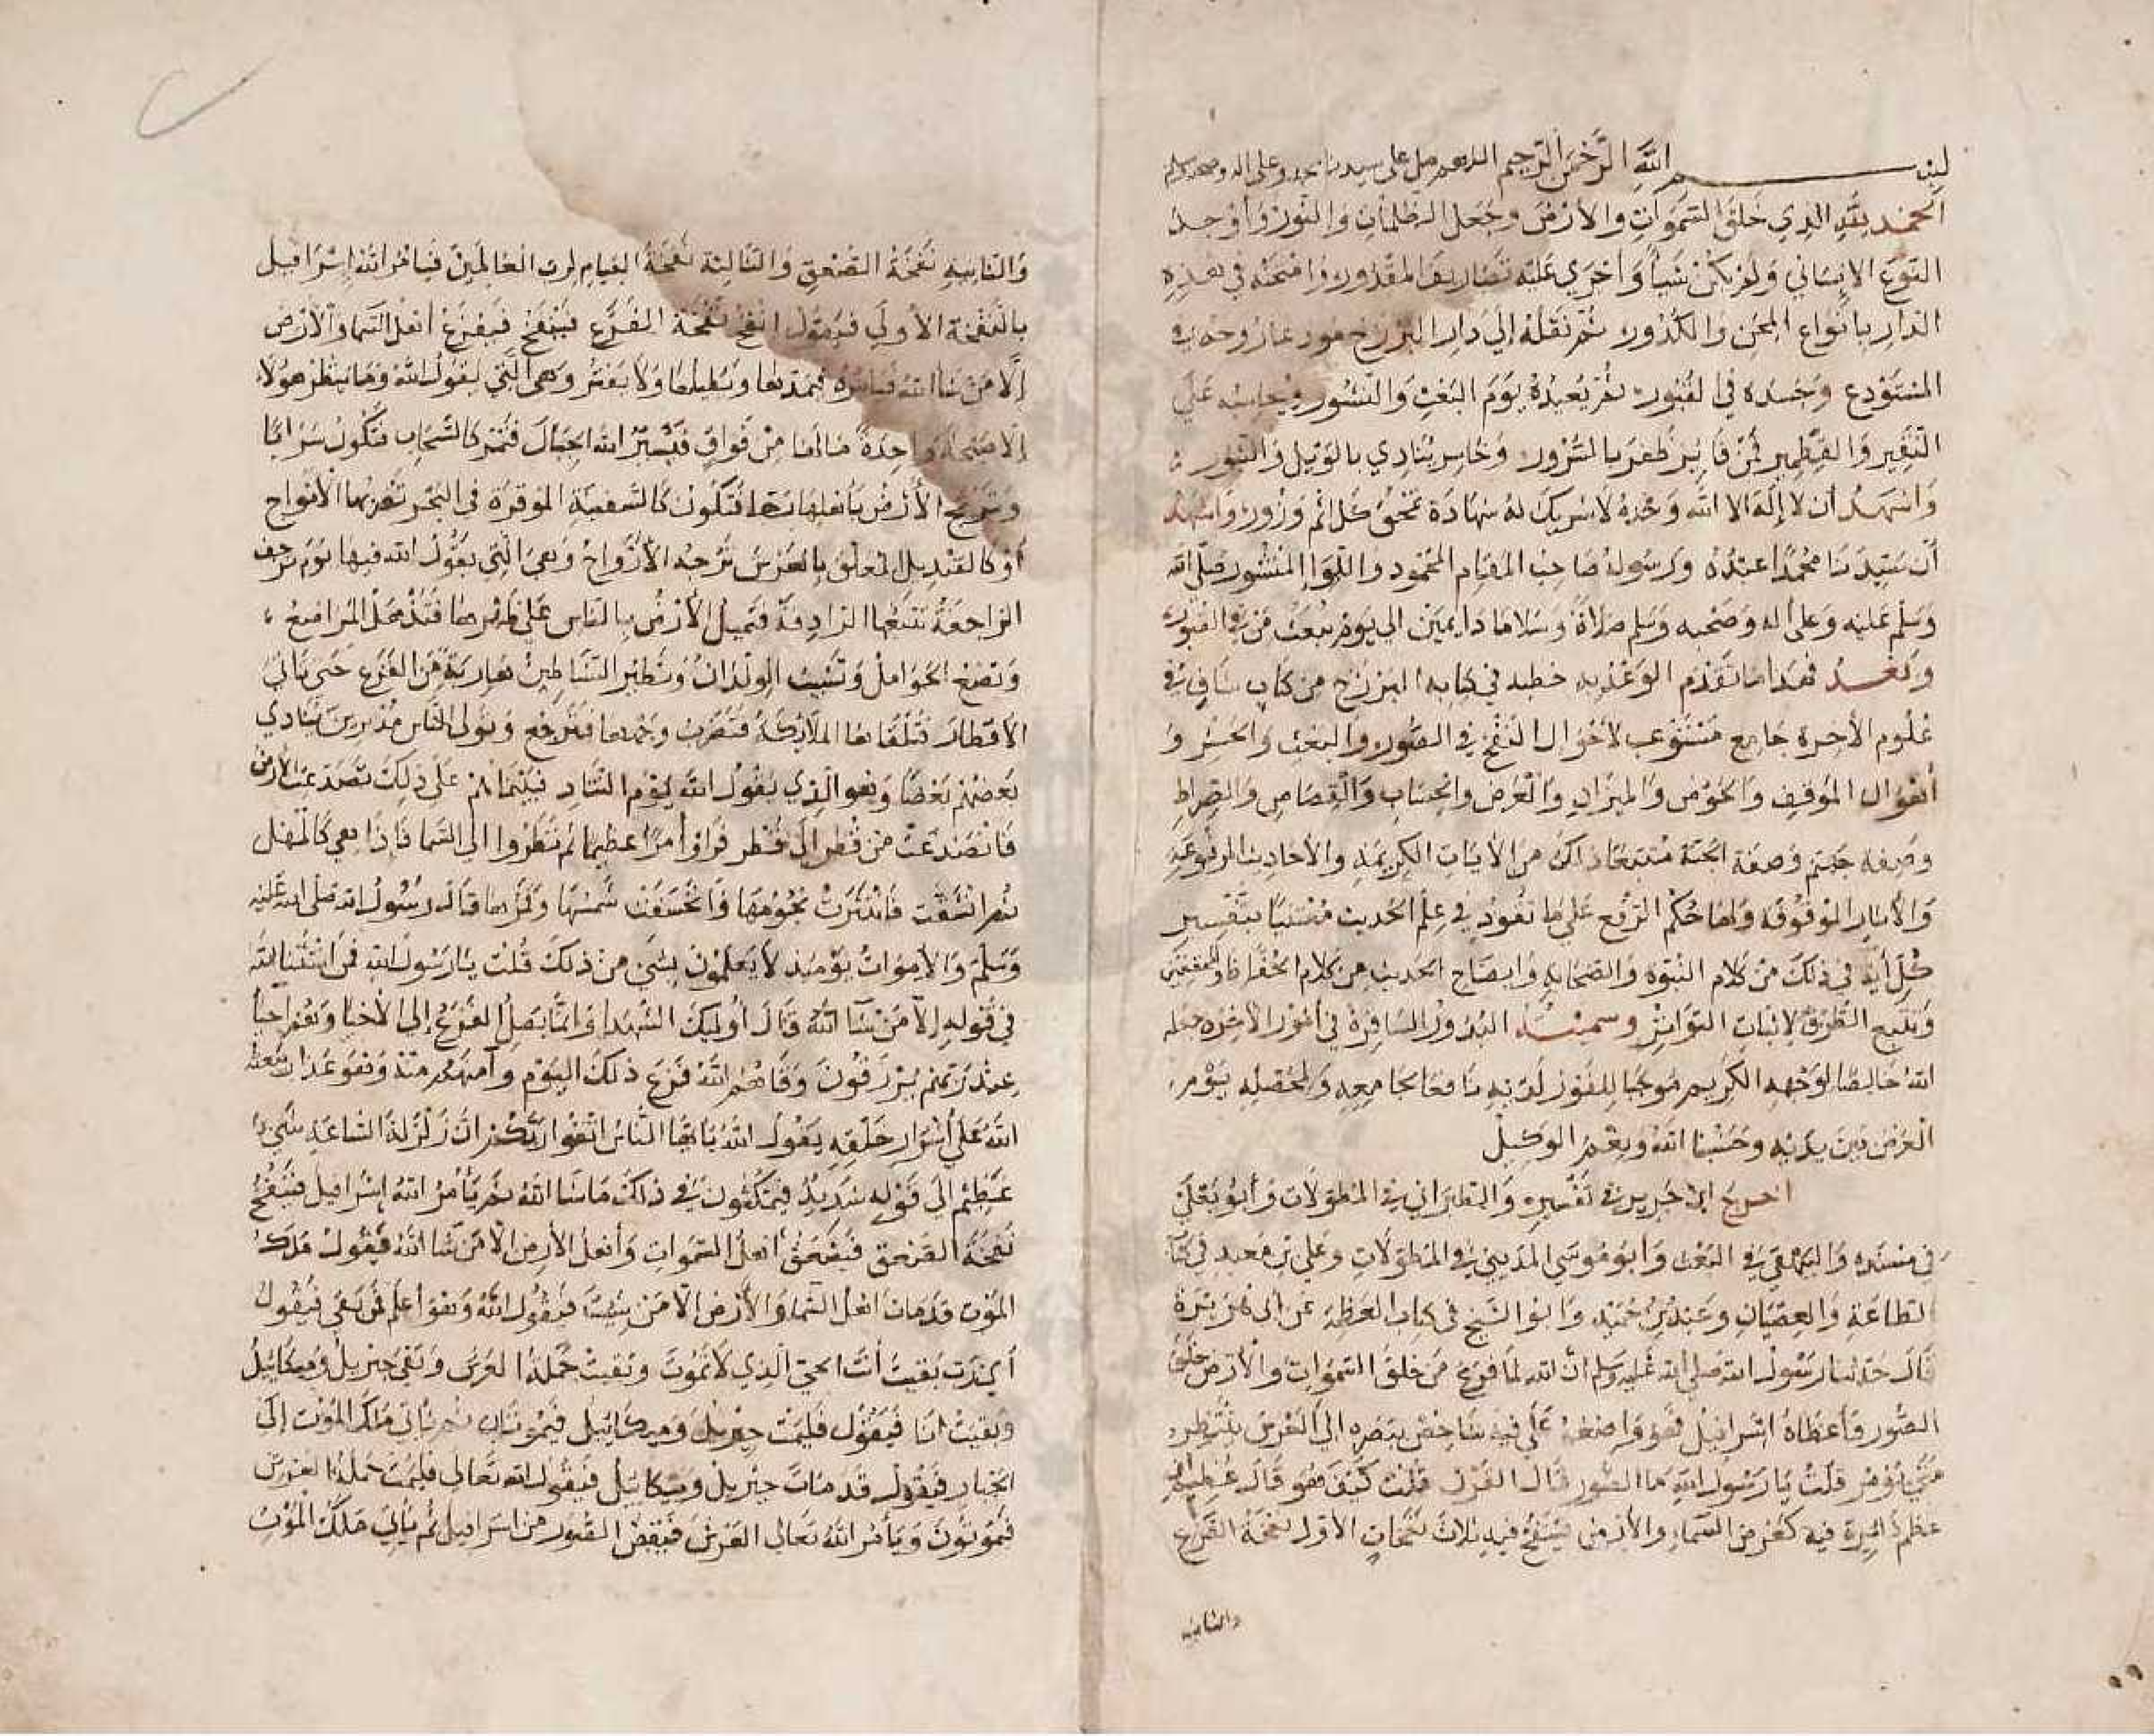 بسم الله الرحمن الرحيم اللهم صل على سيدنا محمد وعلى اله وصحبه وسلم
الحمد لله الذي خلق السموات والارض وجعل الظلمات والنور وأوجد
النوع الإنساني ولم يكن شيأ وأجرى عليه تصاريف المقدور وامتحنه في هذه
الدار بانواع المحن والكدور ثم نقله إلي دار البرزخ روحه في
المستودع وجسده في القبور ثم يعيده يوم البعث والنشور ويحاسبه علي
النقير والقطمير فمن فايز ظفر بالسرور وخاسر ينادي بالويل والثبور
واشهد أن لا إله الا الله وحده لا شريك له شهادة تمحق كل اثم وزور واشهد
أن سيدنا محمدا عبده ورسوله صاحب المقام المحمود واللوا المنشور صلى الله
وسلم عليه وعلى اله وصحبه وسلم صلاة وسلاما دايمين الي يوم يبعث من في القبور
وبعد فهذا ما تقدم الوعد به خطبه في كتابه البرزخ من كتاب شاف في
علوم الأخرة جامع مستوعب لأحوال النفخ في الصور والبعث والحشر و
أهوال الموقف والحوض والميزان والعرض والحساب والقصاص والصراط
وصفة جهنم وصفة الجنة متتبعا ذلك من الأيات الكريمة والأحاديث المرفوعة
والأثار الموقوفه ولها حكم الرفع على ما تقرر في علم الحديث معتنيا بتفسير
كل أية في ذلك من كلام النبوة والصحابة وايضاح الحديث من كلام الحفاظ والمحققين
وتتبع الطرق لاثبات التواتر وسميته البدور السافرة في أمور الأخرة جعله
الله خالصا لوجهه الكريم موجبا للفوز لديه نافعا لجامعه والمحصله يوم
العرض بين يديه وحسبنا الله ونعم الوكيل
اخرج ابن جرير في تفسيره والطبراني في المطولات وأبو يعلي
في مسنده والبيهقي في البعث وأبو موسي المديني في المطولات وعلي بن معبد في كتاب
الطاعة والعصيان وعبد بن حميد وأبو الشيخ في كتاب العظمة عن أبى هريرة
قال حدثنا رسول الله صلى الله عليه وسلم ان الله لما فرغ من خلق السموات والأرض خلق
الصور وأعطاه اسرافيل فهو واضعه علي فيه شاخص ببصره الي العرش ينتظر
متى يؤمر قلت يا رسول الله ما الصور قال القرن قلت كيف هو قال عظيم ان
عظم دايرة فيه كعرض السماء والأرض ينفخ فيه ثلاث نفخات الأولى نفخة الفزع
والثانيه
والثانيه نفخة الصعق والثالثة نفخة القيام لرب العالمين فيامر الله إسرافيل
بالنفخة الأولي فيقول انفخ نفخة الفزع فينفخ فيفزع أهل السما والأرض
إلا من شا الله فيامره فيمدها ويطيلها ولا يفتر وهي التي يقول الله وما ينظر هولاء
إلا صيحة واحدة ما لها من فواق فيسير الله الجبال فتمر كالسحاب فتكون سرابا
وترتج الأرض بأهلها رجا فتكون كالسفينة الموقرة في البحر تضربها الأمواج
أو كالقنديل المعلق بالعرش ترجه الأرواح وهي التي يقول الله فيها يوم ترجف
الراجفة تتبعها الرادفة فتميل الأرض بالناس على ظهرها فتذهل المراضع
وتضع الحوامل وتشيب الولدان وتطير الشياطين هاربة من الفزع حتى تاتي
الاقطار فتلقاها الملائكة فتضرب وجوهها فترجع ويولى الناس مدبرين ينادي
بعضهم بعضا وهو الذي يقول الله يوم التناد فبينما هم على ذلك تصدعت الأرض
فانصدعت من قطر إلى قطر فراوا أمرا عظيما ثم نظروا الي السما فاذا هي كالمهل
ثم انشقت فانتثرت نجومها وانخسفت شمسها وقمرها قال رسول الله صلى الله عليه
وسلم والأموات يومئذ لا يعلمون بشي من ذلك قلت يا رسول الله فمن استثنا الله
في قوله إلا من شا الله قال أوليك الشهدا وانما يصل الفزع إلى الأحيا وهم أحيا
عند ربهم يرزقون وقاهم الله فزع ذلك اليوم وآمنهم منه وهو عذاب يبعثه
الله على أشرار خلقه يقول الله يا أيها الناس اتقوا ربكم ان زلزلة الساعة شي
عظيم إلى قوله شديد فيمكثون في ذلك ما شا الله ثم يأمر الله إسرافيل فينفخ
نفخة الصعق فيصعق أهل السموات وأهل الأرض الا من شا الله فيقول ملك
الموت قد مات اهل السما والأرض الا من شيت فيقول الله وهو أعلم فمن بقي فيقول
أي رب بقيت أنت الحي الذي لا تموت وبقيت حملة العرش وبقى جبريل وميكائيل
وبقيت انا فيقول فليمت جبريل وميكائيل فيموتان ثم ياتى ملك الموت إلى
الجبار فيقول قد مات جبريل وميكائيل فيقول الله تعالى فليمت حملة العرش
فيموتون ويأمر الله تعالى العرش فيقبض الصور من اسرافيل ثم يأتي ملك الموت